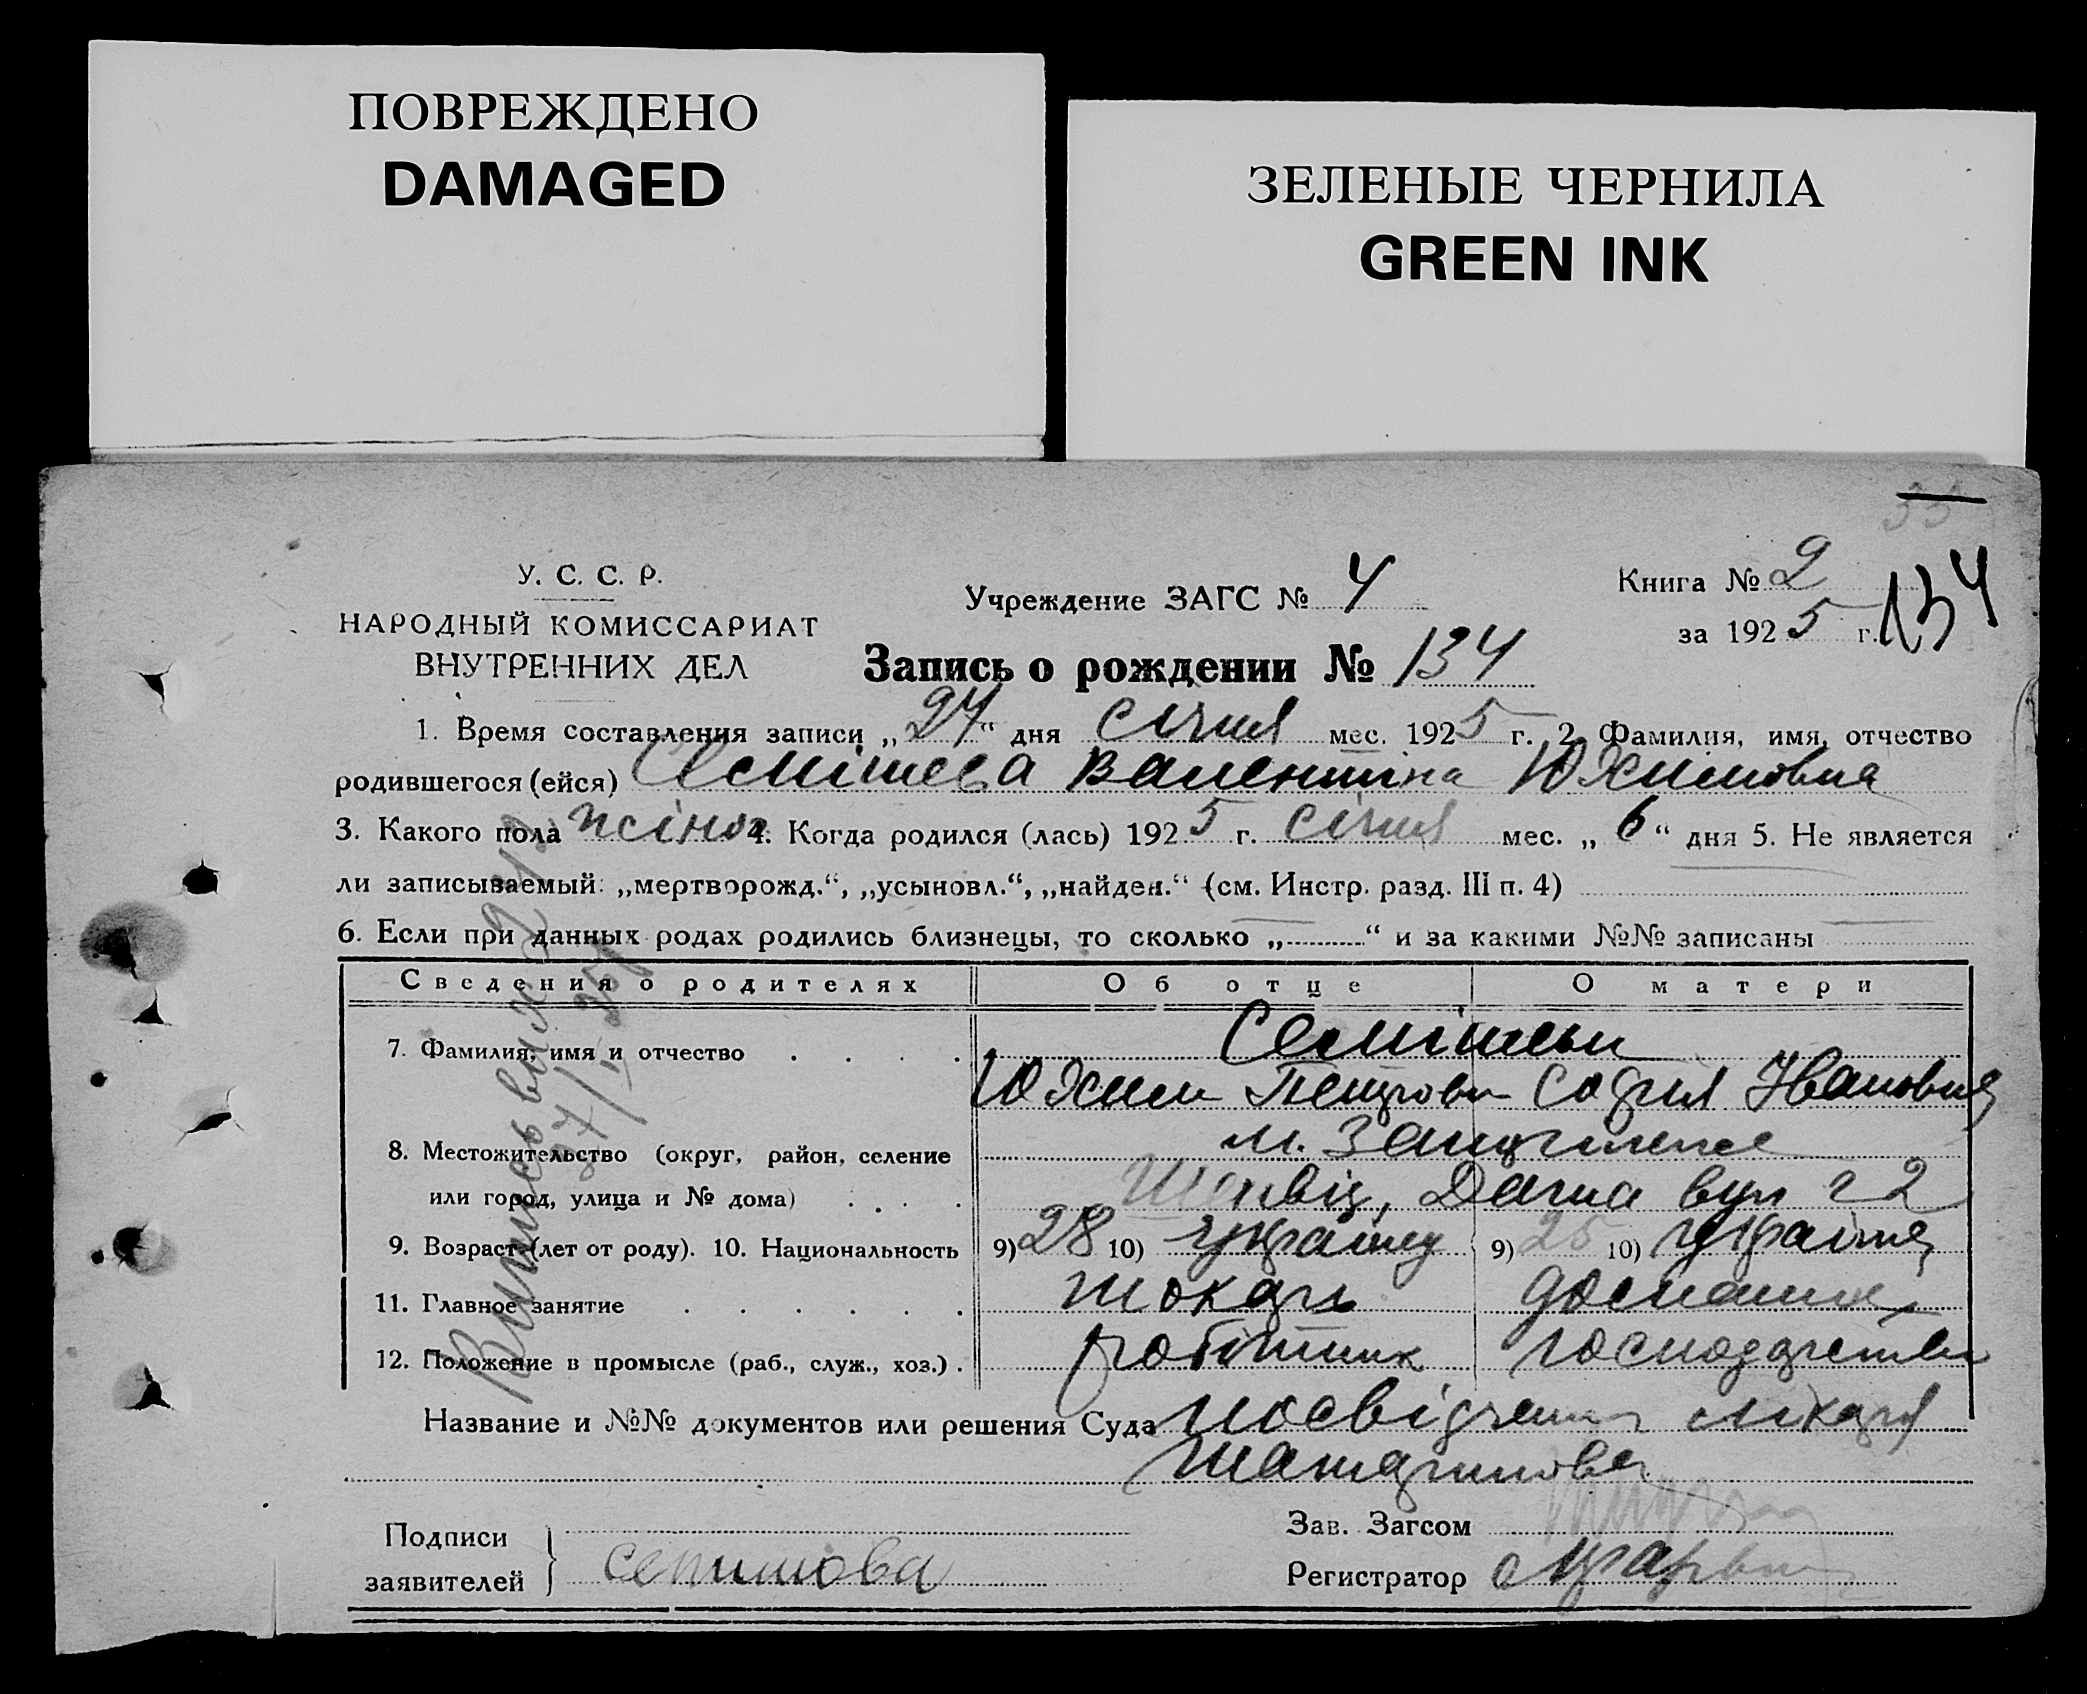 ПОВРЕЖДЕНО
DAMAGED
ЗЕЛЕНЫЕ ЧЕРНИЛА
GREEN INK
33
У. С. С. Р.
НАРОДНЫЙ КОМИССАРИАТ
ВНУТРЕННИХ ДЕЛ
Учреждение ЗАГС № 4
Книга № 2
за 1925 г. 134
Запись о рождении № 134
1. Время составления записи „27“ дня січня мес. 1925 г. 2. Фамилия, имя, отчество
родившегося (ейся) Семішева Валентина Юхимовна
3. Какого пола жіноч 4. Когда родился (лась) 1925 г. січня мес. „6“ дня 5. Не является
ли записываемый: „мертворожд.“, „усыновл.“, „найден.“ (см. Инстр. разд. III п. 4)
6. Если при данных родах родились близнецы, то сколько „..........“ и за какими №№ записаны
Сведения о родителях Об отце О матери
7. Фамилия, имя и отчество Семішеви
Юхим Петрович Софія Ивановна
8. Местожительство (округ, район, селение м.
или город, улица и № дома) вул 2
9. Возраст (лет от роду). 10. Национальность 9) 28 10) украінец 9) 25 10) украінка
11. Главное занятие токарь домашнє
12. Положение в промысле (раб., служ., хоз.) робітник господарство
Название и №№ документов или решения Суда посвідчення лікаря
Подписи
заявителей
Зав. Загсом
Регистратор